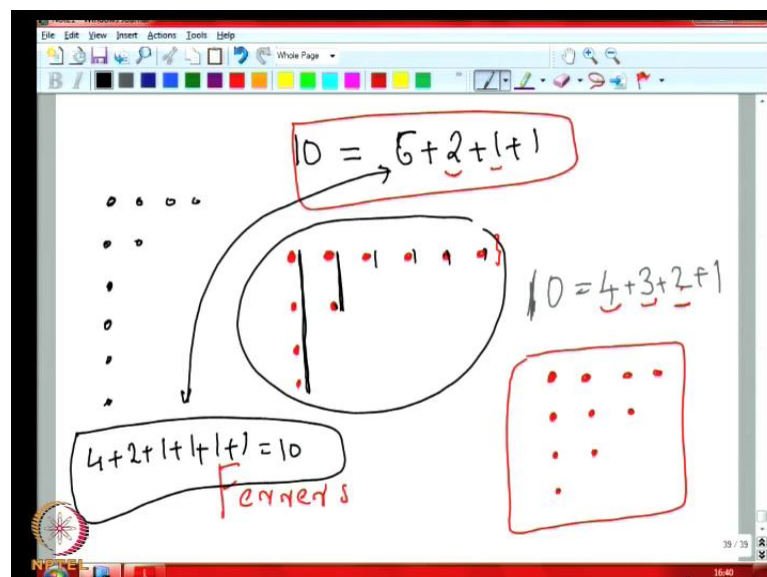 Note1 - Windows Journal
File Edit View Insert Actions Tools Help
Whole Page
B I
10 = 6+2+1+1
10 = 4+3+2+1
4+2+1+1+1+1 = 10
Ferrers
39 / 39
NPTEL
16:40